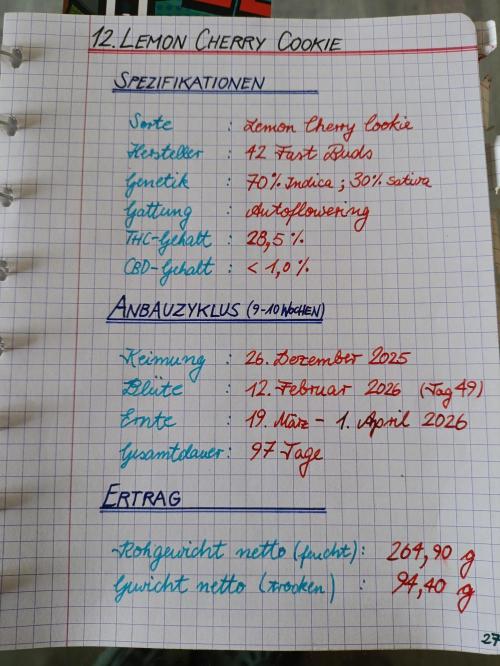 12. LEMON CHERRY COOKIE
SPEZIFIKATIONEN
Sorte : Lemon Cherry Cookie
Hersteller : 42 Fast Buds
Genetik : 70% Indica ; 30% Sativa
Gattung : Autoflowering
THC-Gehalt : 28,5 %
CBD-Gehalt : < 1,0 %
ANBAUZYKLUS (9-10 WOCHEN)
Keimung : 26. Dezember 2025
Blüte : 12. Februar 2026 (Tag 49)
Ernte : 19. März - 1. April 2026
Gesamtdauer : 97 Tage
ERTRAG
Rohgewicht netto (feucht) : 264,90 g
Gewicht netto (trocken) : 94,40 g
27